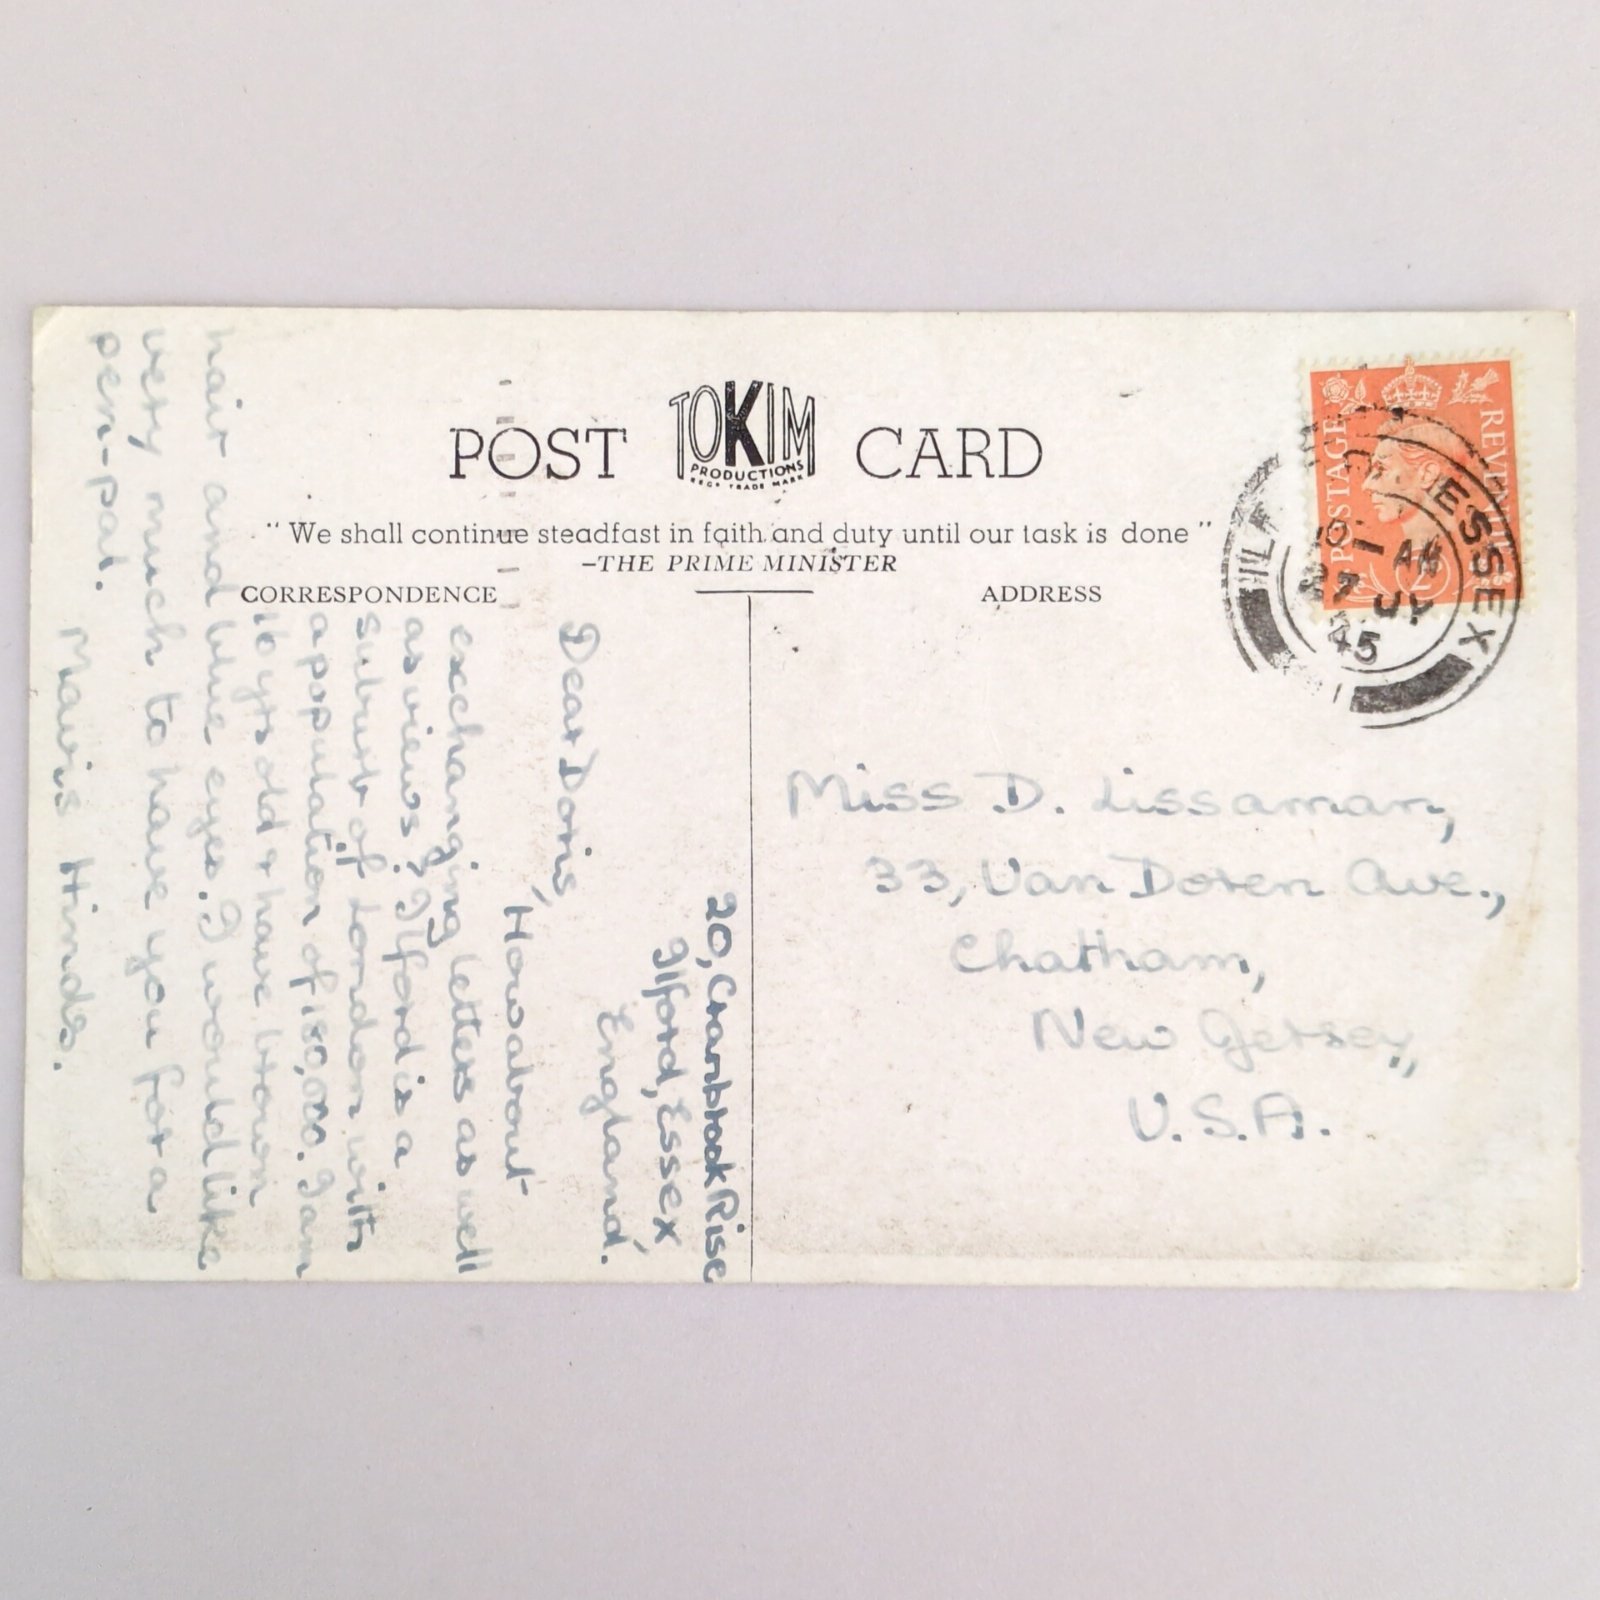 POST TOKIM CARD
PRODUCTIONS
REGD TRADE MARK
" We shall continue steadfast in faith and duty until our task is done "
–THE PRIME MINISTER
CORRESPONDENCE
ADDRESS
POSTAGE REVENUE
ESSEX
AM
JY
45
Miss D. Lissaman,
33, Van Doren Ave.,
Chatham,
New Jersey,
U.S.A.
20, Cranbrook Rise
Ilford, Essex,
England.
Dear Doris,
How about
exchanging letters as well
as views? Ilford is a
suburb of London with
a population of 180,000. I am
16 yrs old & have brown
hair and blue eyes. I would like
very much to have you for a
pen-pal.
Mavis Hinds.